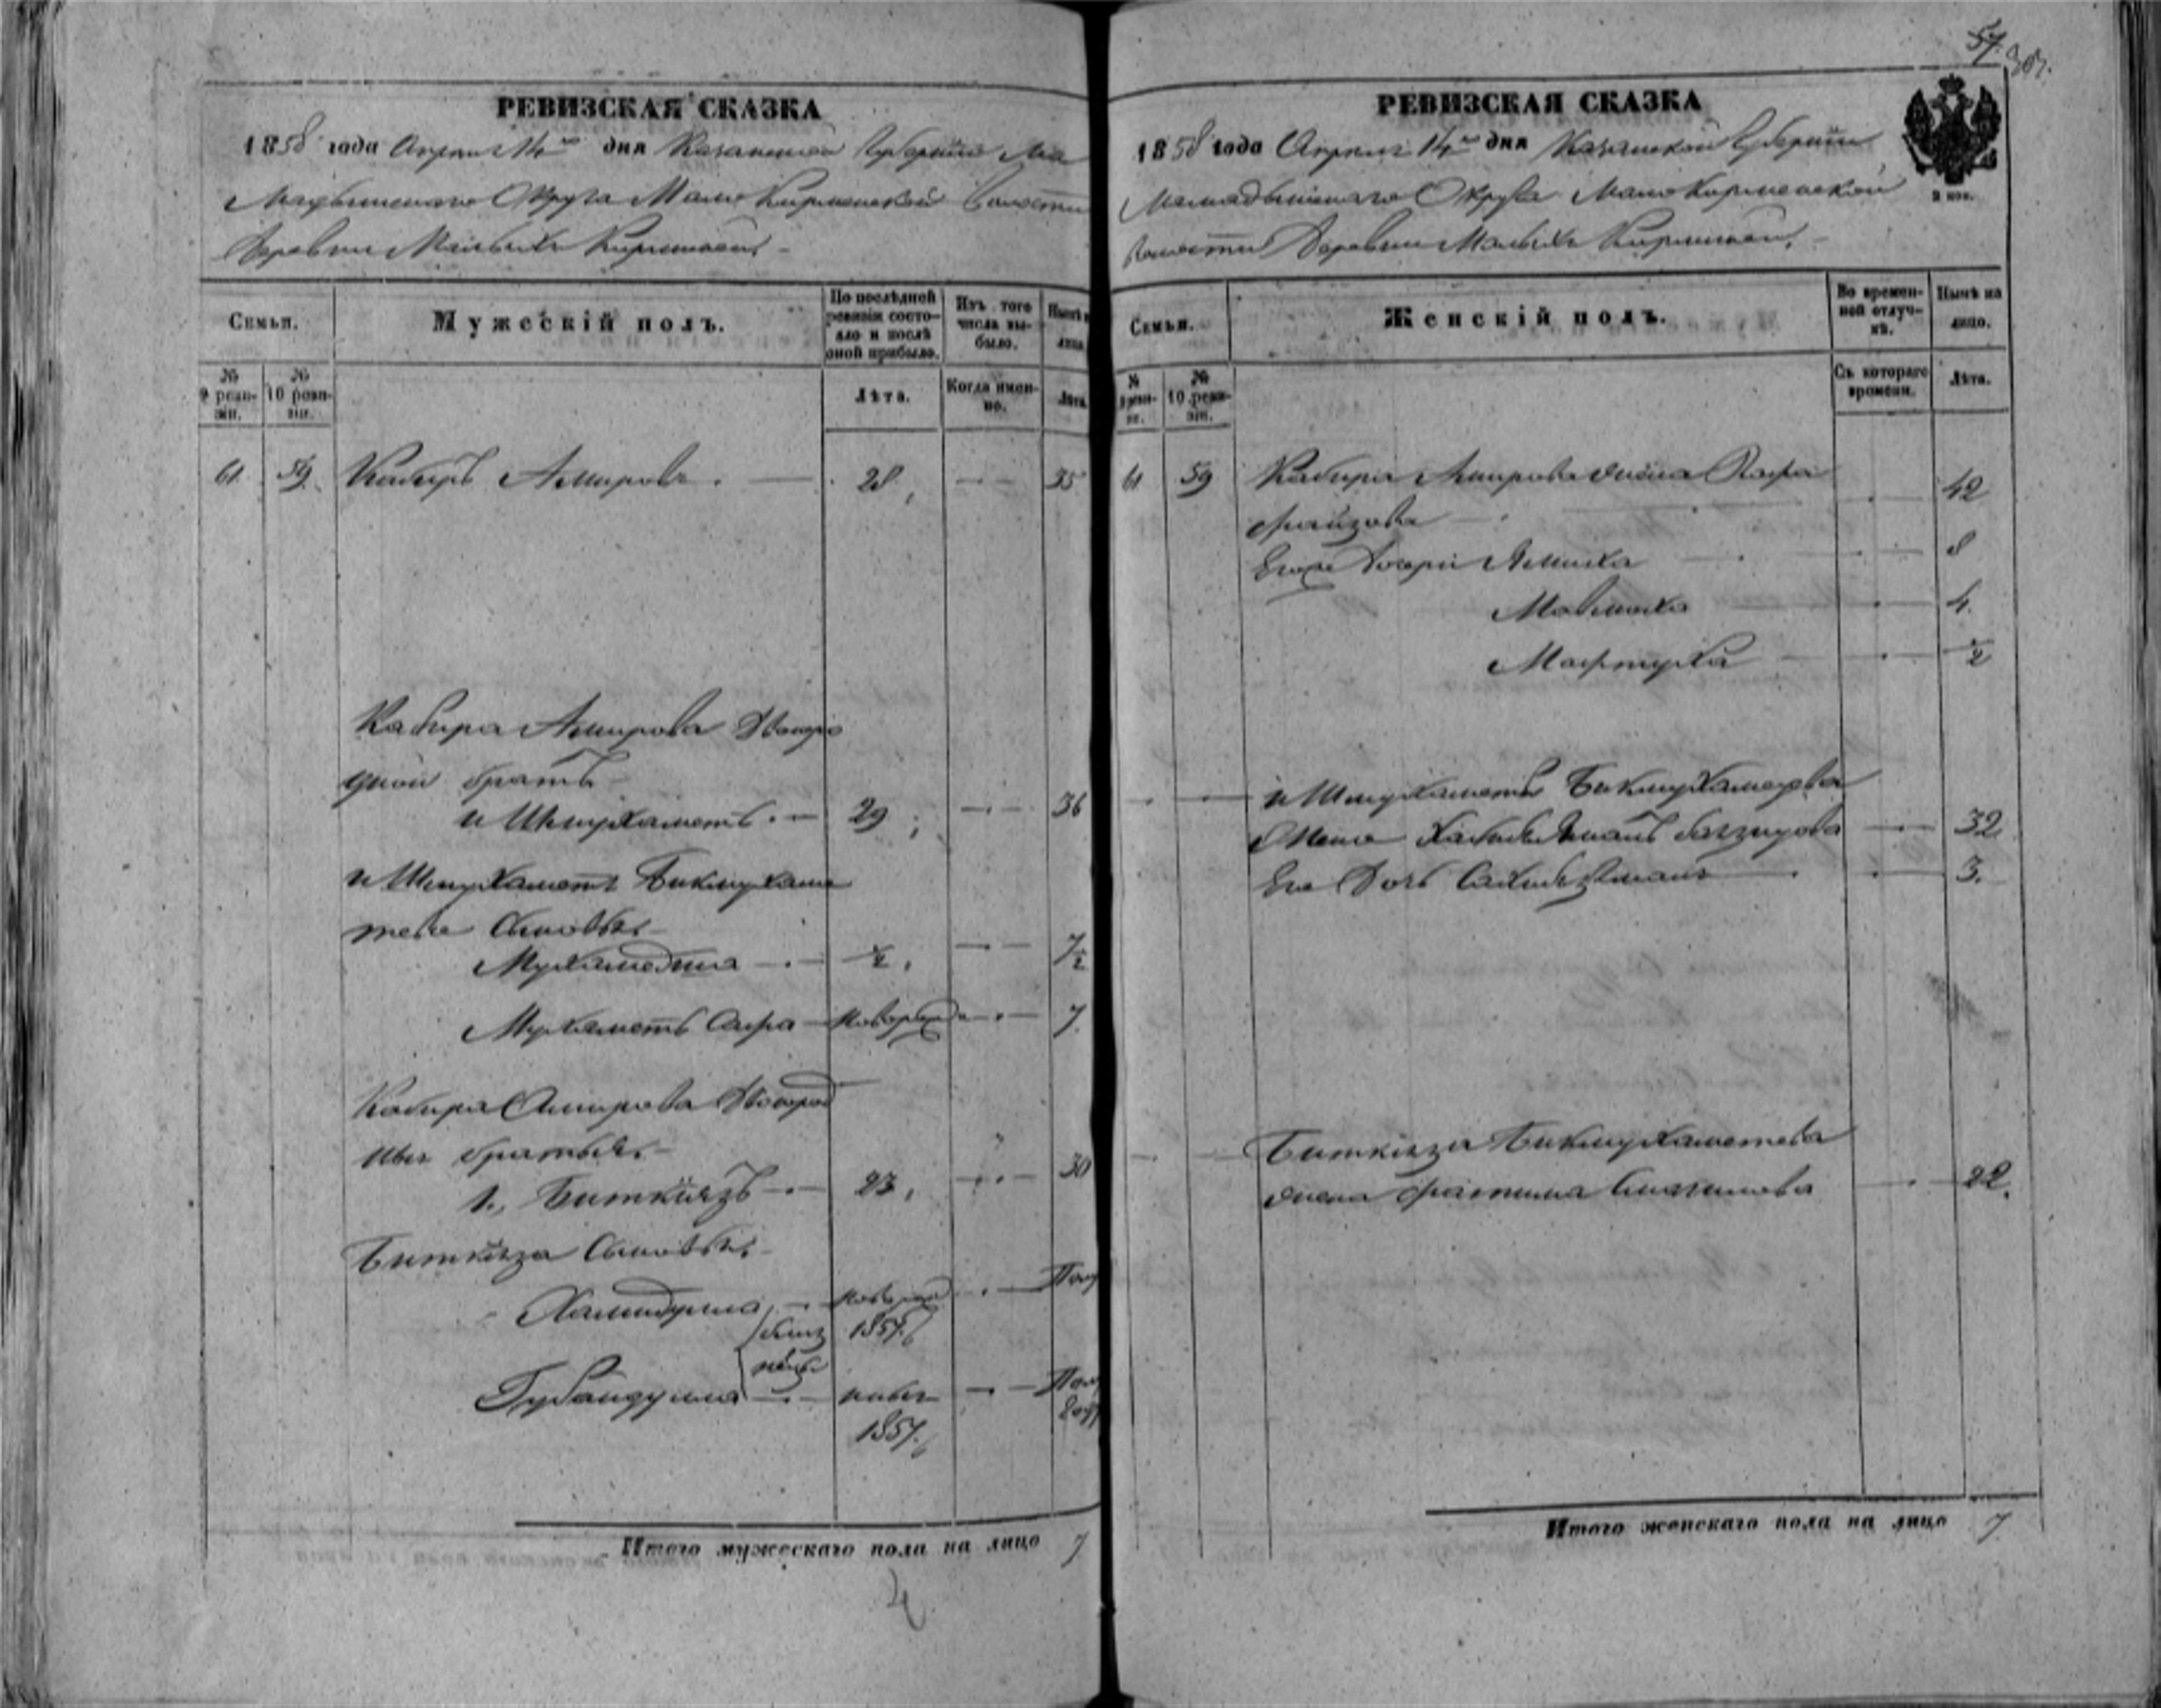 РЕВИЗСКАЯ СКАЗКА
1858 года Апреля 14го дня Казанской Губернии Ма
мадышскаго Округа Мало Кирменской Волости
Деревни Малыхъ Кирменей
Семьи.
Мужескій полъ.
По послѣдней ревизіи состояло и послѣ оной прибыло.
Изъ того числа выбыло.
Нынѣ на лицо
№ 9 ревизіи.
№ 10 ревизіи.
Лѣта.
Когда именно.
Лѣта
61. 59. Кабиръ Амировъ. 28, 35
Кабира Амирова Двоюро
дной братъ
Ишмухаметъ. 29, 36
Ишмухамета Бикмухаме
тева Сыновья
Мухамедша ½, 7½
Мухаметъ Сафа новорож 7.
Кабира Амирова Двоюрод
ные братья
1., Биткиязъ 23, 30
Биткиза Сыновья
Халиидулла новорож Полу
близ 1857.
нецы
Губайдулла новор Полу
1857. Году
Итого мужескаго пола на лицо 7
4
57. 307.
РЕВИЗСКАЯ СКАЗКА
1858 года Апреля 14го дня Казанской Губернии
Мамадышскаго Округа Мало Кирменской
Волости Деревни Малыхъ Кирменей,
2 коп.
Семьи.
Женскій полъ.
Во временной отлучкѣ.
Нынѣ на лицо.
№ 9 ревизіи.
№ 10 ревизіи.
Съ котораго времени.
Лѣта.
61 59 Кабира Амирова жена Сафа
Файзова 42
Его же Дочери Ямиха 8
Мавлиха 4.
Мафтуха ½
Ишмухамета Бикмухаметева
жена 32
Его Дочь 3.
Биткиза Бикмухаметева
жена Фатима 22.
Итого женскаго пола на лицо 7